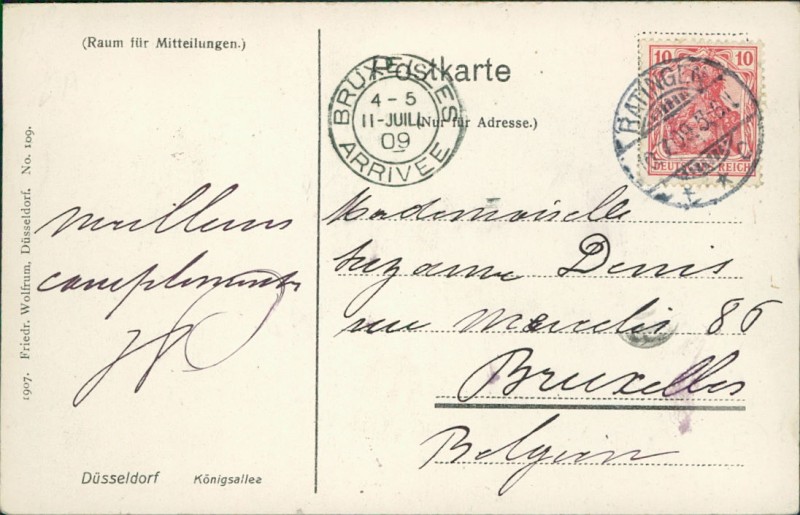 (Raum für Mitteilungen.)
Postkarte
(Nur für Adresse.)
BRUXELLES
4-5
11-JUIL
09
ARRIVEE
10 10
DEUTSCHES REICH
RATINGEN
meilleurs
compliments
Mademoiselle
Suzanne Denis
rue Marcelis 86
Bruxelles
Belgien
Düsseldorf Königsallee
1907. Friedr. Wolfrum, Düsseldorf. No. 109.